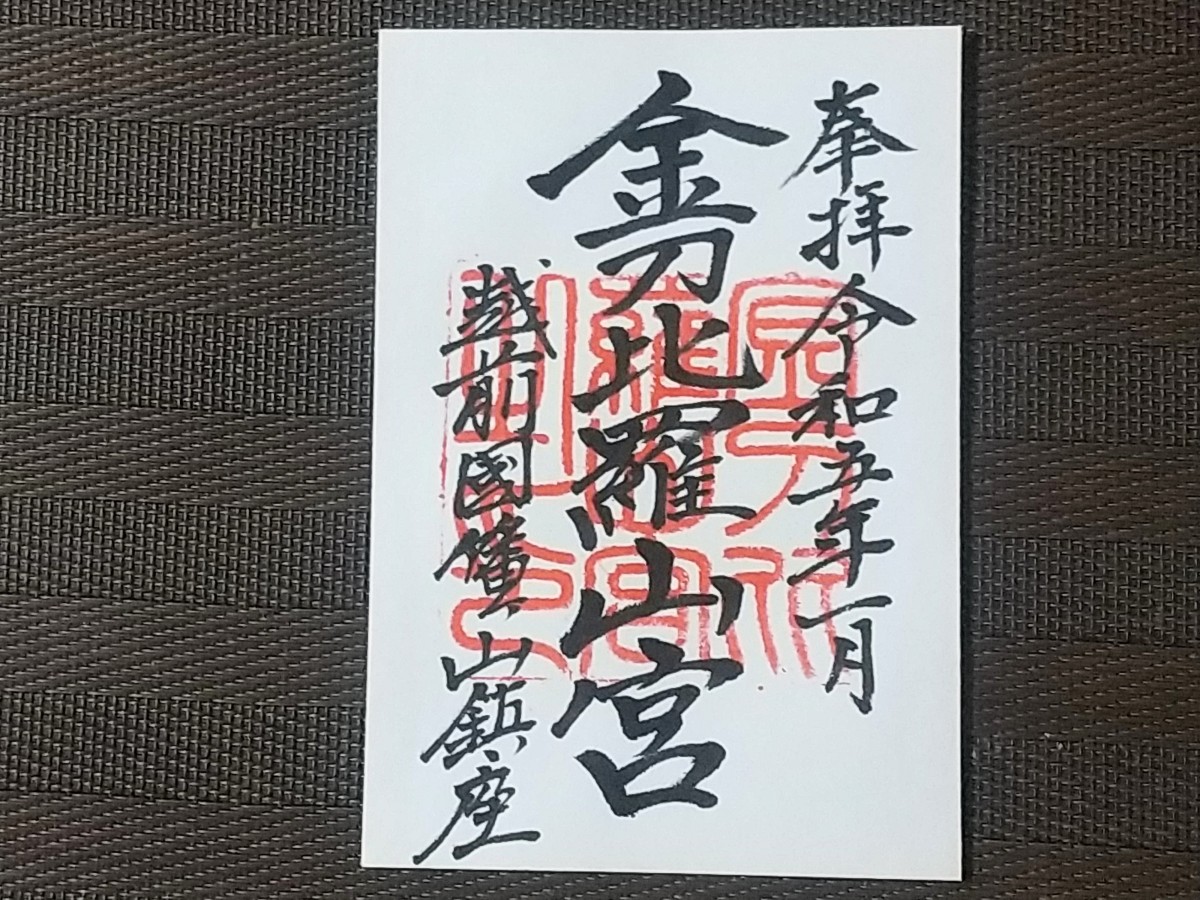 奉拝 令和五年一月
金刀比羅山宮
越前國山鎮座